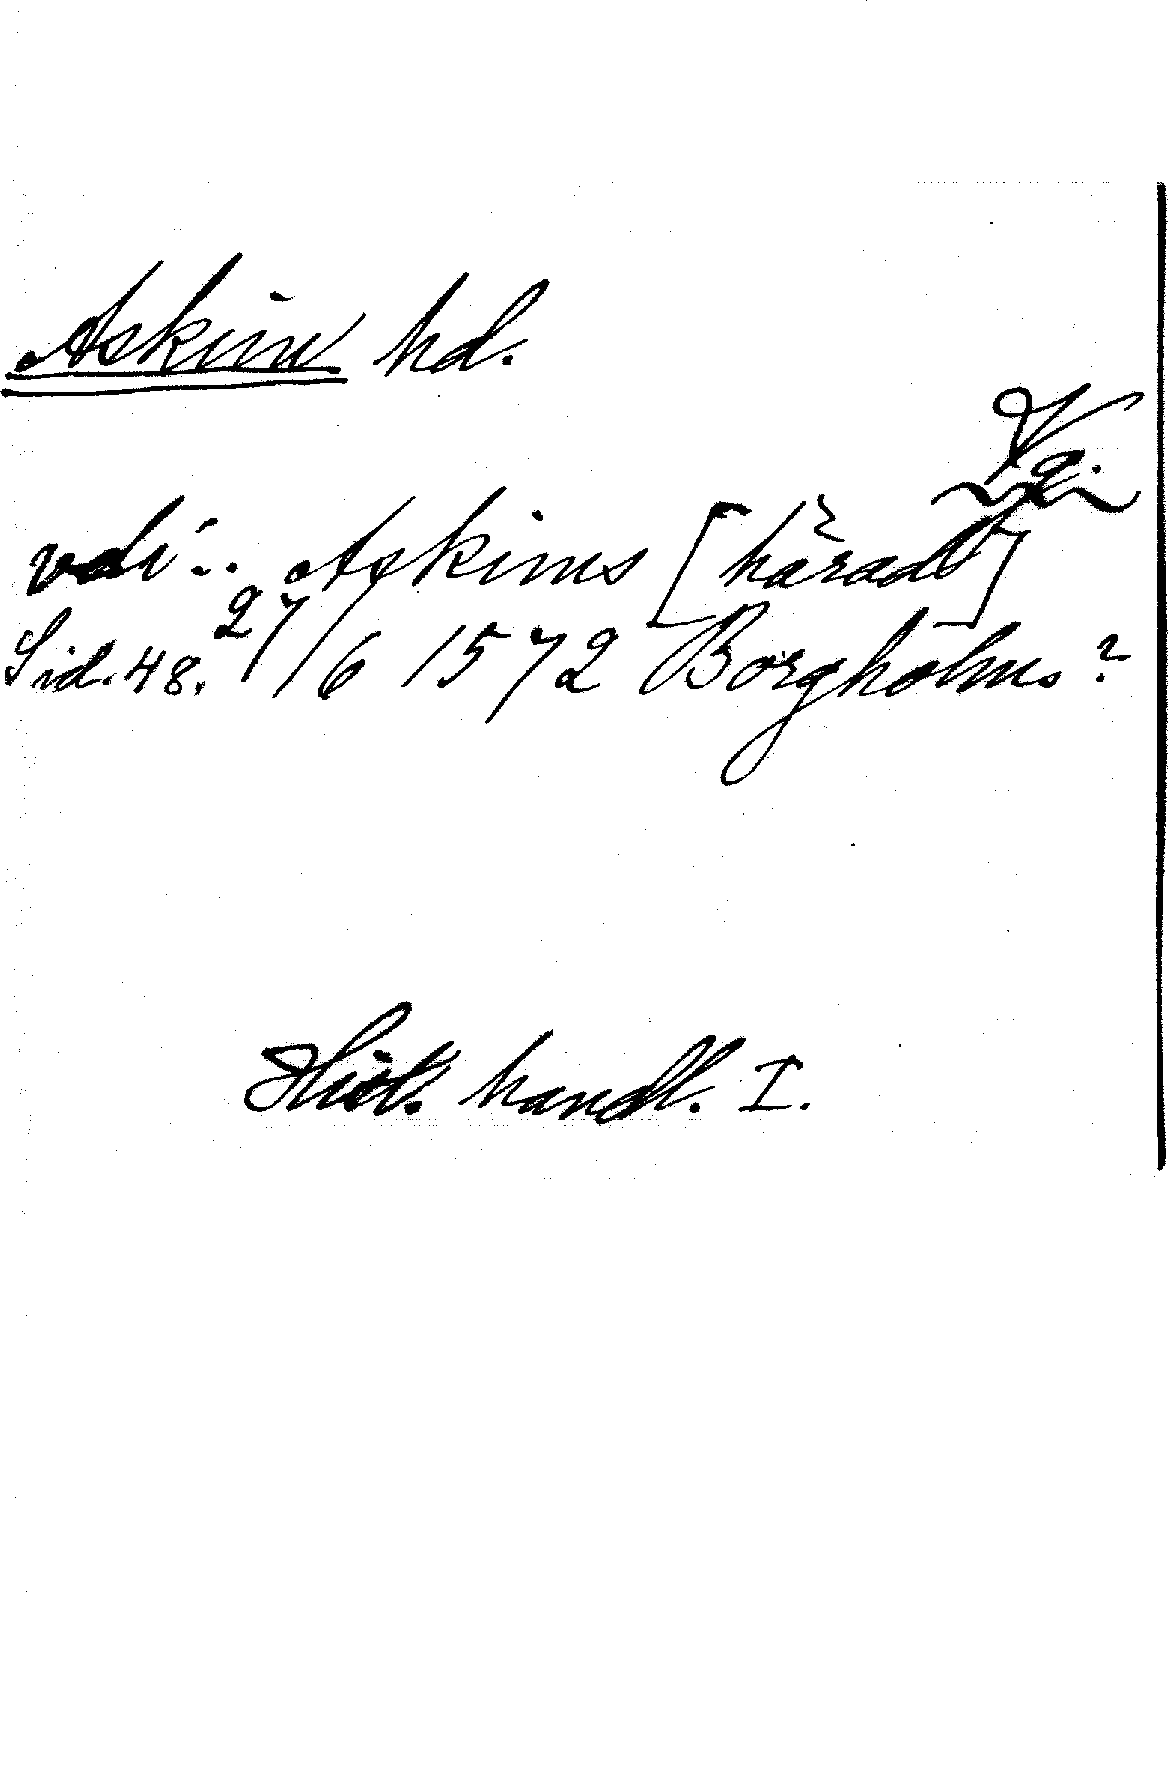 Askim hd.
Vg.
vdi... Askims [härad]
Sid. 48. 27/6 1572 Borgholm. ?
Hist. handl. I.